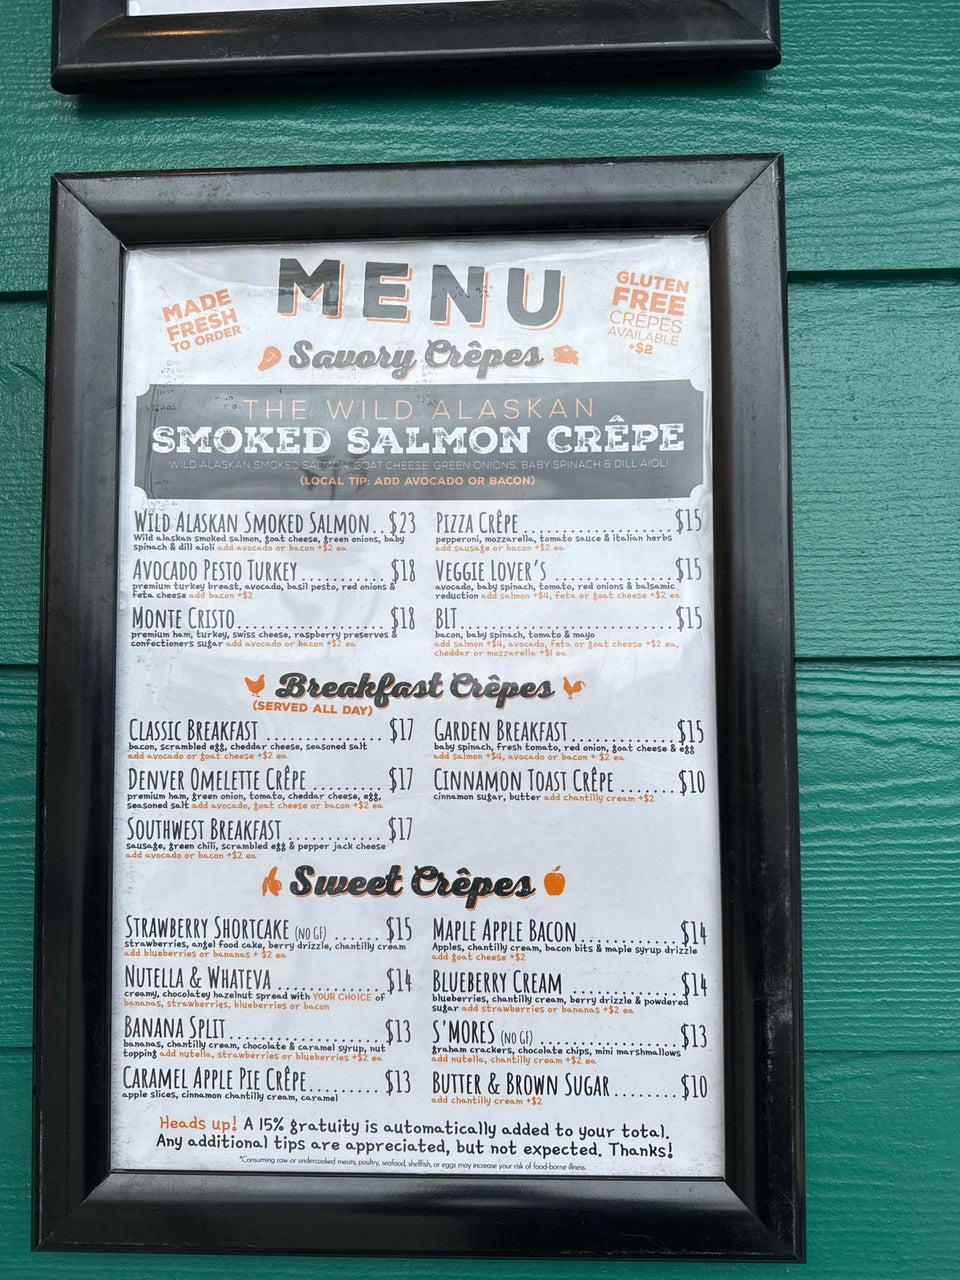 MENU
MADE
FRESH
TO ORDER
GLUTEN
FREE
CRÊPES
AVAILABLE
+$2
Savory Crêpes
THE WILD ALASKAN
SMOKED SALMON CRÊPE
WILD ALASKAN SMOKED SALMON, GOAT CHEESE, GREEN ONIONS, BABY SPINACH & DILL AIOLI
(LOCAL TIP: ADD AVOCADO OR BACON)
WILD ALASKAN SMOKED SALMON..$23
Wild alaskan smoked salmon, goat cheese, green onions, baby
spinach & dill aioli add avocado or bacon +$2 ea
AVOCADO PESTO TURKEY ............ $18
premium turkey breast, avocado, basil pesto, red onions &
feta cheese add bacon +$2
MONTE CRISTO...................... $18
premium ham, turkey, swiss cheese, raspberry preserves &
confectioners sugar add avocado or bacon +$2 ea
PIZZA CRÊPE......................$15
pepperoni, mozzarella, tomato sauce & italian herbs
add sausage or bacon +$2 ea
VEGGIE LOVER'S..................$15
avocado, baby spinach, tomato, red onions & balsamic
reduction add salmon +$4, feta or goat cheese +$2 ea
BLT................................$15
bacon, baby spinach, tomato & mayo
add salmon +$4, avocado, feta or goat cheese +$2 ea,
cheddar or mozzarella +$1 ea
Breakfast Crêpes
(SERVED ALL DAY)
CLASSIC BREAKFAST .................. $17
bacon, scrambled egg, cheddar cheese, seasoned salt
add avocado or goat cheese +$2 ea
DENVER OMELETTE CRÊPE ........... $17
premium ham, green onion, tomato, cheddar cheese, egg,
seasoned salt add avocado, goat cheese or bacon +$2 ea
SOUTHWEST BREAKFAST ............ $17
sausage, green chili, scrambled egg & pepper jack cheese
add avocado or bacon +$2 ea
GARDEN BREAKFAST................$15
baby spinach, fresh tomato, red onion, goat cheese & egg
add salmon +$4, avocado or bacon + $2 ea
CINNAMON TOAST CRÊPE ........ $10
cinnamon sugar, butter add chantilly cream +$2
Sweet Crêpes
STRAWBERRY SHORTCAKE (NO GF) ...... $15
strawberries, angel food cake, berry drizzle, chantilly cream
add blueberries or bananas + $2 ea
NUTELLA & WHATEVA .............. $14
creamy, chocolatey hazelnut spread with YOUR CHOICE of
bananas, strawberries, blueberries or bacon
BANANA SPLIT...................... $13
bananas, chantilly cream, chocolate & caramel syrup, nut
topping add nutella, strawberries or blueberries +$2 ea
CARAMEL APPLE PIE CRÊPE.......... $13
apple slices, cinnamon chantilly cream, caramel
MAPLE APPLE BACON..............$14
Apples, chantilly cream, bacon bits & maple syrup drizzle
add goat cheese +$2
BLUEBERRY CREAM ...............$14
blueberries, chantilly cream, berry drizzle & powdered
sugar add strawberries or bananas +$2 ea
S'MORES (NO GF) .....................$13
graham crackers, chocolate chips, mini marshmallows
add nutella, chantilly cream +$2 ea
BUTTER & BROWN SUGAR..........$10
add chantilly cream +$2
Heads up! A 15% gratuity is automatically added to your total.
Any additional tips are appreciated, but not expected. Thanks!
*Consuming raw or undercooked meats, poultry, seafood, shellfish, or eggs may increase your risk of food-borne illness.